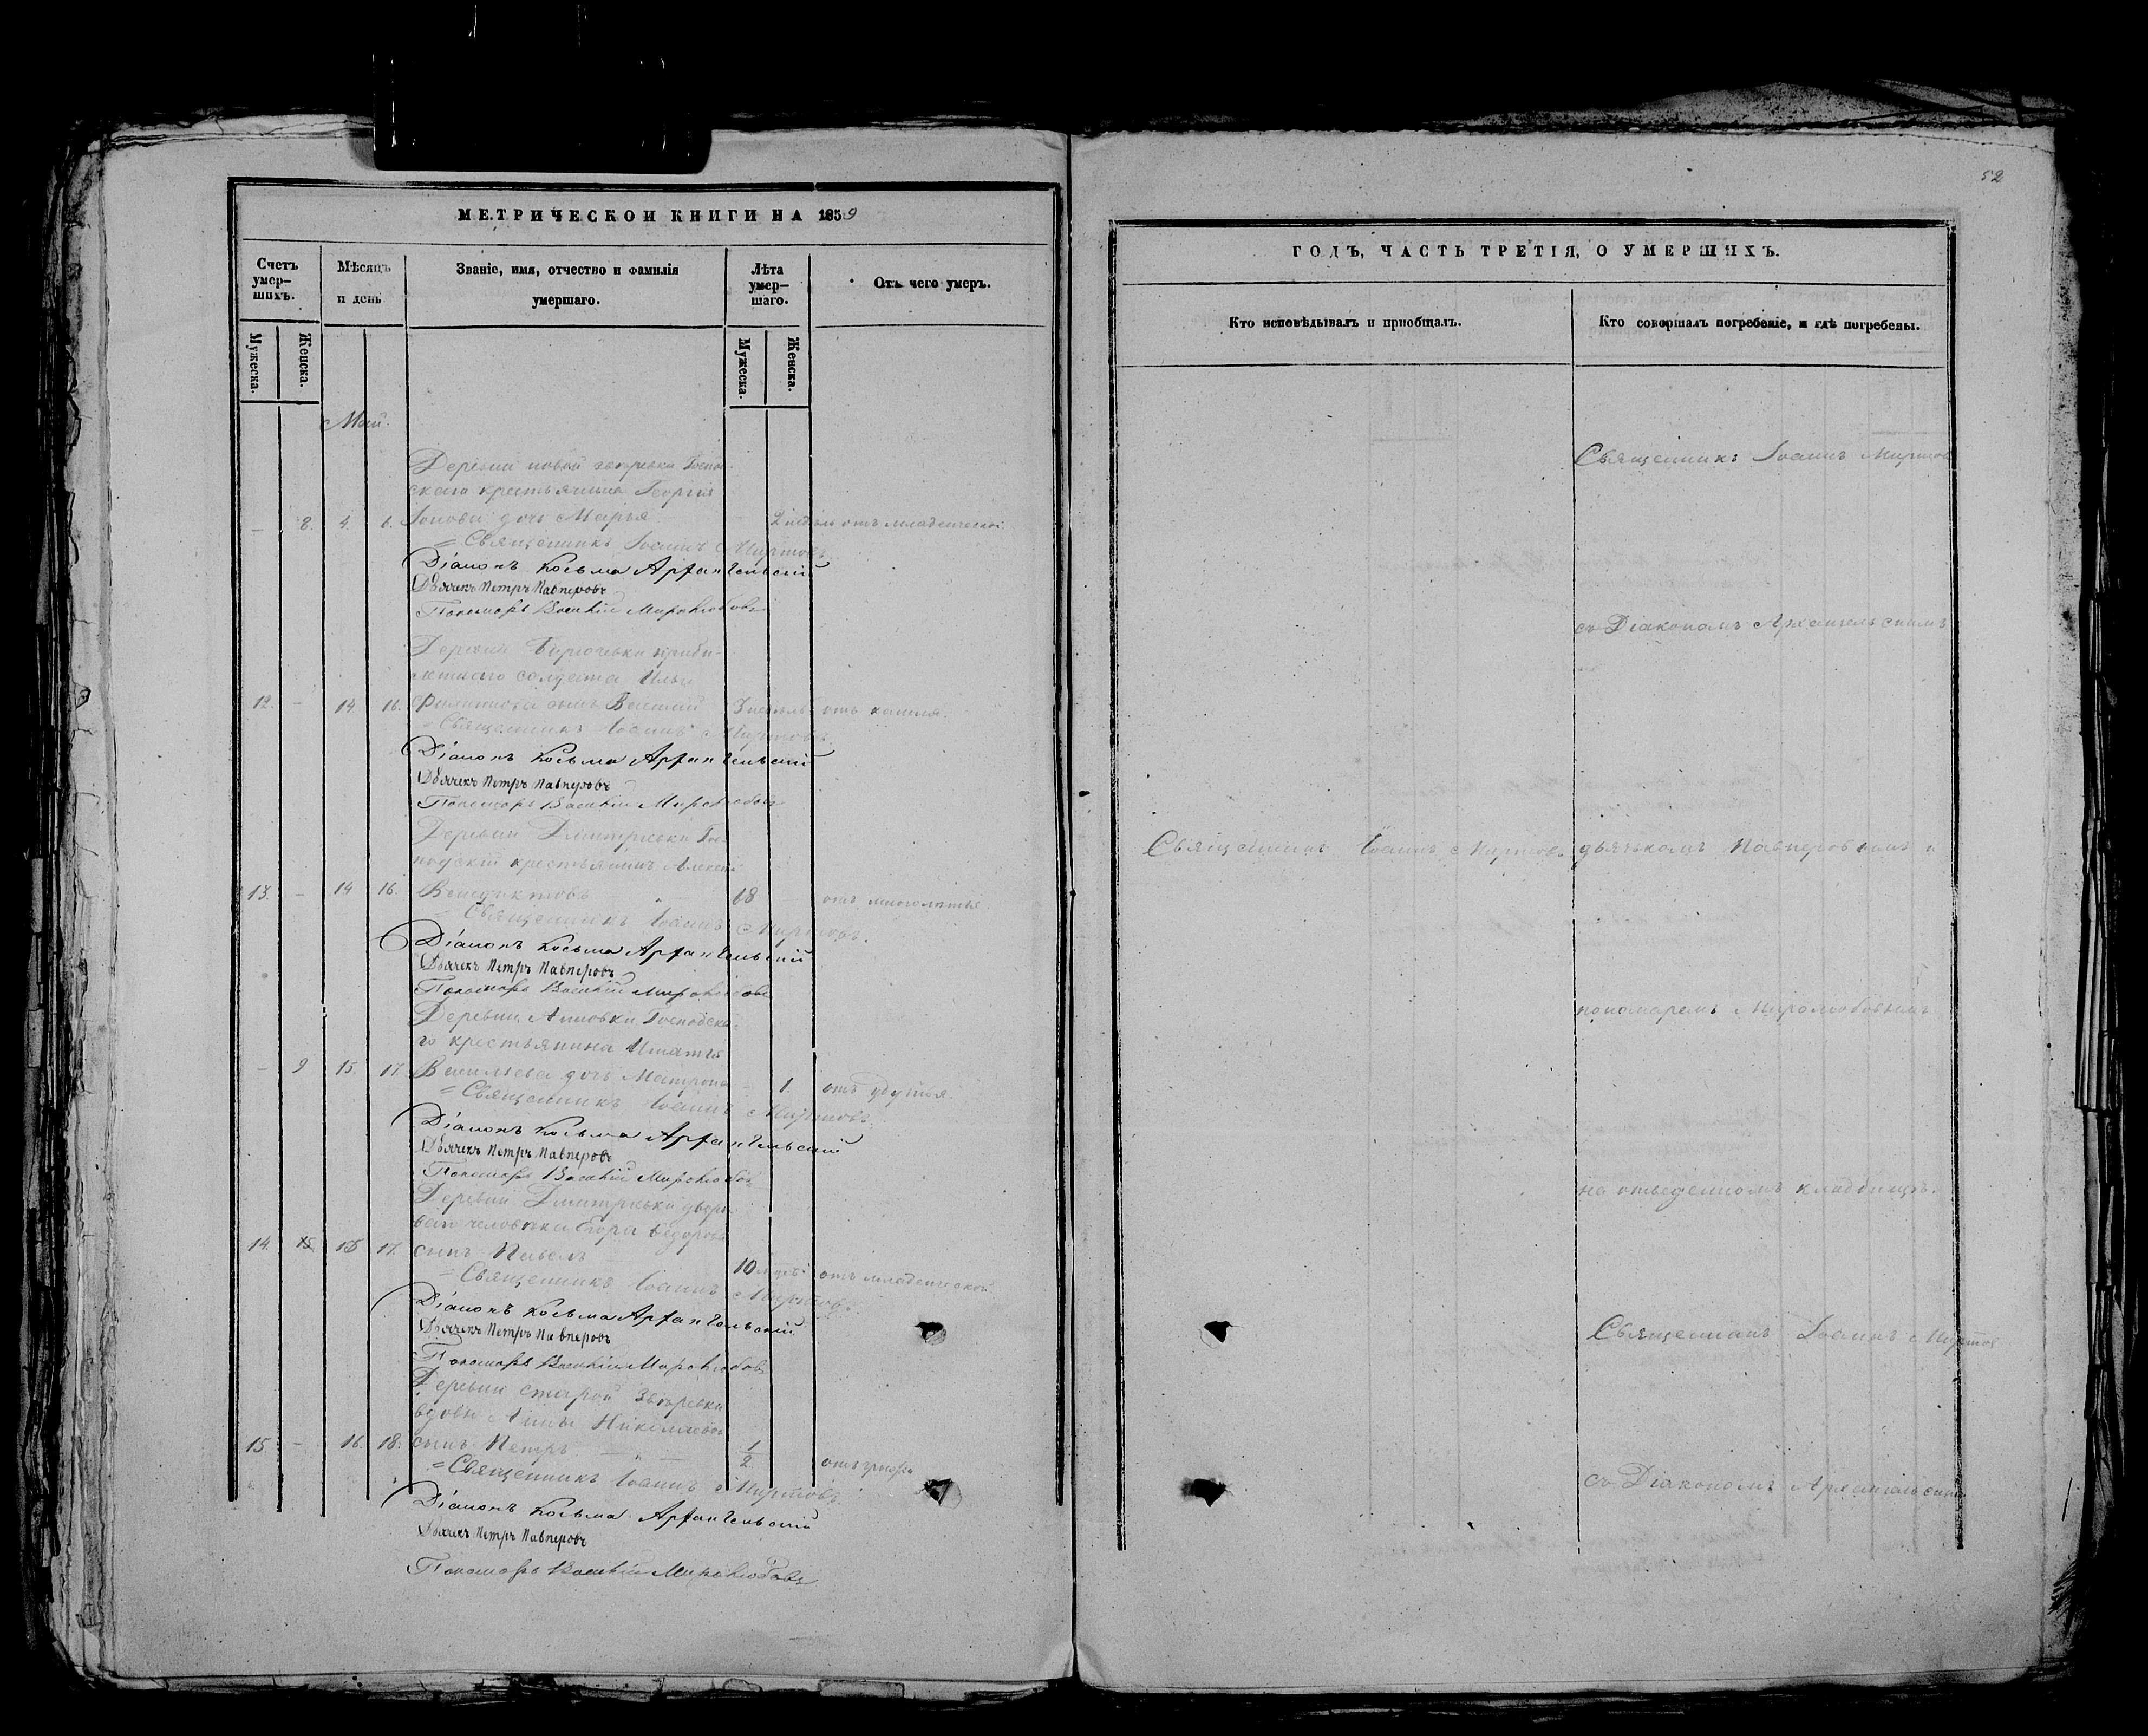 МЕТРИЧЕСКОЙ КНИГИ НА 1859
Счетъ умер-шихъ.
Мѣсяцъ и день
Званіе, имя, отчество и фамилія умершаго.
Лѣта умер-шаго.
Отъ чего умеръ.
Мужеска.
Женска.
Мужеска.
Женска.
Май.
Деревни новой
скаго крестьянина Георгія
— 8. 4. 6. дочь Марья 2 недѣль отъ младенческой
= Священникъ Іоаннъ Миртовъ
Діаконъ Косьма Архангельскій
Дьячекъ Петръ Павперовъ
Пономарь Василій Миролюбовъ
Деревни
солдата Ильи
12. — 14 16. Филипова сынъ Василій 3 недѣль отъ кашля.
= Священникъ Іоаннъ Миртовъ.
Діаконъ Косьма Архангельскій
Дьячекъ Петръ Павперовъ
Пономарь Василій Миролюбовъ
Деревни Дмитріевки Гос-
подскій крестьянинъ Алексѣй
13. — 14 16. Венедиктовъ 68 отъ
= Священникъ Іоаннъ Миртовъ.
Діаконъ Косьма Архангельскій
Дьячекъ Петръ Павперовъ
Пономарь Василій Миролюбовъ
Деревни Анновки Господска-
го крестьянина Игнатія
— 9 15. 17. Васильева дочь Матрона — 1. отъ удушья.
= Священникъ Іоаннъ Миртовъ.
Діаконъ Косьма Архангельскій
Дьячекъ Петръ Павперовъ
Пономарь Василій Миролюбовъ
Деревни Дмитріевки дворо-
ваго человѣка Егора Ѳедорова
14. 15 17. сынъ Павелъ 10 отъ младенческой
= Священникъ Іоаннъ Миртовъ.
Діаконъ Косьма Архангельскій
Дьячекъ Петръ Павперовъ
Пономарь Василій Миролюбовъ
Деревни старой
вдовы Анны Николаевой
15 — 16. 18. сынъ Петръ 1/2
= Священникъ Іоаннъ Миртовъ.
Діаконъ Косьма Архангельскій
Дьячекъ Петръ Павперовъ
Пономарь Василій Миролюбовъ
52
ГОДЪ, ЧАСТЬ ТРЕТІЯ, О УМЕРШИХЪ.
Кто исповѣдывалъ и пріобщалъ.
Кто совершалъ погребеніе, и гдѣ погребены.
Священникъ Іоаннъ Миртов
съ Діакономъ Архангельскимъ
Священникъ Іоаннъ Миртовъ. дьячкомъ Павперовымъ и
пономаремъ Миролюбовымъ
на отведенномъ кладбищѣ.
Священникъ Іоаннъ Миртов
съ Діакономъ Архангельским